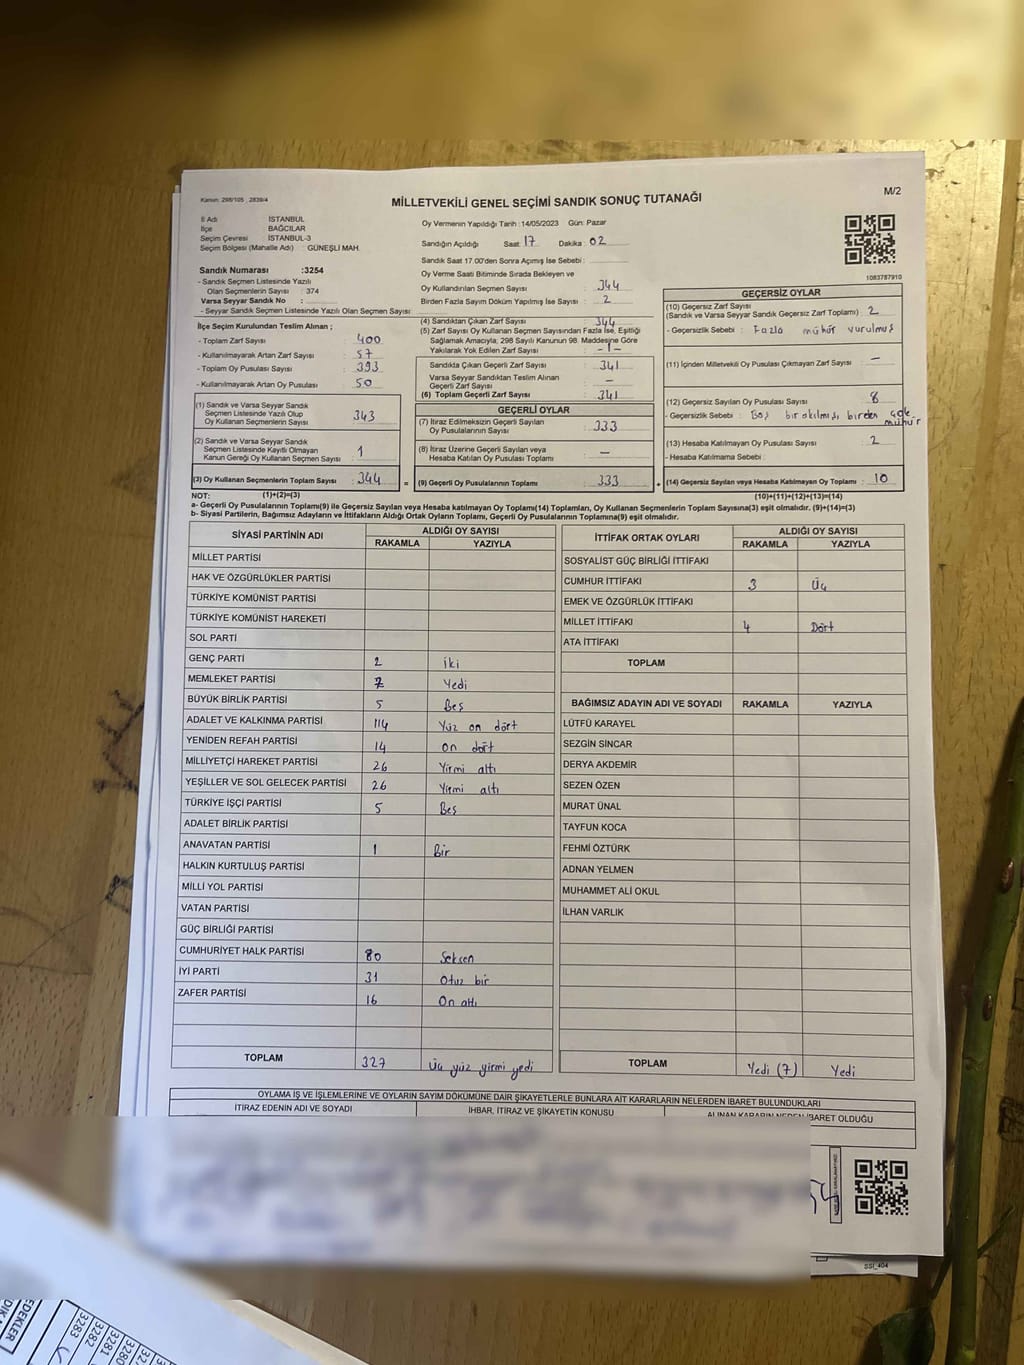 Kanun: 298/105 , 2839/4
MİLLETVEKİLİ GENEL SEÇİMİ SANDIK SONUÇ TUTANAĞI
M/2
İl Adı İSTANBUL
İlçe BAĞCILAR
Seçim Çevresi İSTANBUL-3
Seçim Bölgesi (Mahalle Adı) : GÜNEŞLİ MAH.
Sandık Numarası :3254
- Sandık Seçmen Listesinde Yazılı
Olan Seçmenlerin Sayısı : 374
Varsa Seyyar Sandık No :
- Seyyar Sandık Seçmen Listesinde Yazılı Olan Seçmen Sayısı
İlçe Seçim Kurulundan Teslim Alınan ;
- Toplam Zarf Sayısı : 400
- Kullanılmayarak Artan Zarf Sayısı : 57
- Toplam Oy Pusulası Sayısı : 393
- Kullanılmayarak Artan Oy Pusulası : 50
(1) Sandık ve Varsa Seyyar Sandık
Seçmen Listesinde Yazılı Olup
Oy Kullanan Seçmenlerin Sayısı : 343
(2) Sandık ve Varsa Seyyar Sandık
Seçmen Listesinde Kayıtlı Olmayan
Kanun Gereği Oy Kullanan Seçmen Sayısı : 1
(3) Oy Kullanan Seçmenlerin Toplam Sayısı : 344 =
Oy Vermenin Yapıldığı Tarih : 14/05/2023 Gün: Pazar
Sandığın Açıldığı Saat : 17 Dakika : 02
Sandık Saat 17.00'den Sonra Açımış İse Sebebi :
Oy Verme Saati Bitiminde Sırada Bekleyen ve
Oy Kullandırılan Seçmen Sayısı : 344
Birden Fazla Sayım Döküm Yapılmış İse Sayısı : 2
(4) Sandıktan Çıkan Zarf Sayısı : 344
(5) Zarf Sayısı Oy Kullanan Seçmen Sayısından Fazla İse, Eşitliği
Sağlamak Amacıyla; 298 Sayılı Kanunun 98. Maddesine Göre
Yakılarak Yok Edilen Zarf Sayısı : -1-
Sandıkta Çıkan Geçerli Zarf Sayısı : 341
Varsa Seyyar Sandıktan Teslim Alınan
Geçerli Zarf Sayısı : -
(6) Toplam Geçerli Zarf Sayısı : 341
GEÇERLİ OYLAR
(7) İtiraz Edilmeksizin Geçerli Sayılan
Oy Pusulalarının Sayısı : 333
(8) İtiraz Üzerine Geçerli Sayılan veya
Hesaba Katılan Oy Pusulası Toplamı : -
(9) Geçerli Oy Pusulalarının Toplamı : 333 +
1083787910
GEÇERSİZ OYLAR
(10) Geçersiz Zarf Sayısı
(Sandık ve Varsa Seyyar Sandık Geçersiz Zarf Toplamı) : 2
- Geçersizlik Sebebi : Fazla mühür vurulmuş
(11) İçinden Milletvekili Oy Pusulası Çıkmayan Zarf Sayısı : -
(12) Geçersiz Sayılan Oy Pusulası Sayısı : 8
- Geçersizlik Sebebi : Boş bırakılmış, birden çok mühür
(13) Hesaba Katılmayan Oy Pusulası Sayısı : 2
- Hesaba Katılmama Sebebi :
(14) Geçersiz Sayılan veya Hesaba Katılmayan Oy Toplamı : 10
NOT: (1)+(2)=(3) (10)+(11)+(12)+(13)=(14)
a- Geçerli Oy Pusulalarının Toplamı(9) ile Geçersiz Sayılan veya Hesaba katılmayan Oy Toplamı(14) Toplamları, Oy Kullanan Seçmenlerin Toplam Sayısına(3) eşit olmalıdır. (9)+(14)=(3)
b- Siyasi Partilerin, Bağımsız Adayların ve İttifakların Aldığı Ortak Oyların Toplamı, Geçerli Oy Pusulalarının Toplamına(9) eşit olmalıdır.
SİYASİ PARTİNİN ADI ALDIĞI OY SAYISI
RAKAMLA YAZIYLA
MİLLET PARTİSİ
HAK VE ÖZGÜRLÜKLER PARTİSİ
TÜRKİYE KOMÜNİST PARTİSİ
TÜRKİYE KOMÜNİST HAREKETİ
SOL PARTİ
GENÇ PARTİ 2 iki
MEMLEKET PARTİSİ 7 Yedi
BÜYÜK BİRLİK PARTİSİ 5 Beş
ADALET VE KALKINMA PARTİSİ 114 Yüz on dört
YENİDEN REFAH PARTİSİ 14 on dört
MİLLİYETÇİ HAREKET PARTİSİ 26 Yirmi altı
YEŞİLLER VE SOL GELECEK PARTİSİ 26 Yirmi altı
TÜRKİYE İŞÇİ PARTİSİ 5 Beş
ADALET BİRLİK PARTİSİ
ANAVATAN PARTİSİ 1 Bir
HALKIN KURTULUŞ PARTİSİ
MİLLİ YOL PARTİSİ
VATAN PARTİSİ
GÜÇ BİRLİĞİ PARTİSİ
CUMHURİYET HALK PARTİSİ 80 Seksen
İYİ PARTİ 31 Otuz bir
ZAFER PARTİSİ 16 On altı
TOPLAM 327 Üç yüz yirmi yedi
İTTİFAK ORTAK OYLARI ALDIĞI OY SAYISI
RAKAMLA YAZIYLA
SOSYALİST GÜÇ BİRLİĞİ İTTİFAKI
CUMHUR İTTİFAKI 3 Üç
EMEK VE ÖZGÜRLÜK İTTİFAKI
MİLLET İTTİFAKI 4 Dört
ATA İTTİFAKI
TOPLAM
BAĞIMSIZ ADAYIN ADI VE SOYADI RAKAMLA YAZIYLA
LÜTFÜ KARAYEL
SEZGİN SİNCAR
DERYA AKDEMİR
SEZEN ÖZEN
MURAT ÜNAL
TAYFUN KOCA
FEHMİ ÖZTÜRK
ADNAN YELMEN
MUHAMMET ALİ OKUL
İLHAN VARLIK
TOPLAM Yedi (7) Yedi
OYLAMA İŞ VE İŞLEMLERİNE VE OYLARIN SAYIM DÖKÜMÜNE DAİR ŞİKAYETLERLE BUNLARA AİT KARARLARIN NELERDEN İBARET BULUNDUKLARI
İTİRAZ EDENİN ADI VE SOYADI İHBAR, İTİRAZ VE ŞİKAYETİN KONUSU ALINAN KARARIN NEDEN İBARET OLDUĞU
SSİ_404
EDEKLER
3283
3282
3281